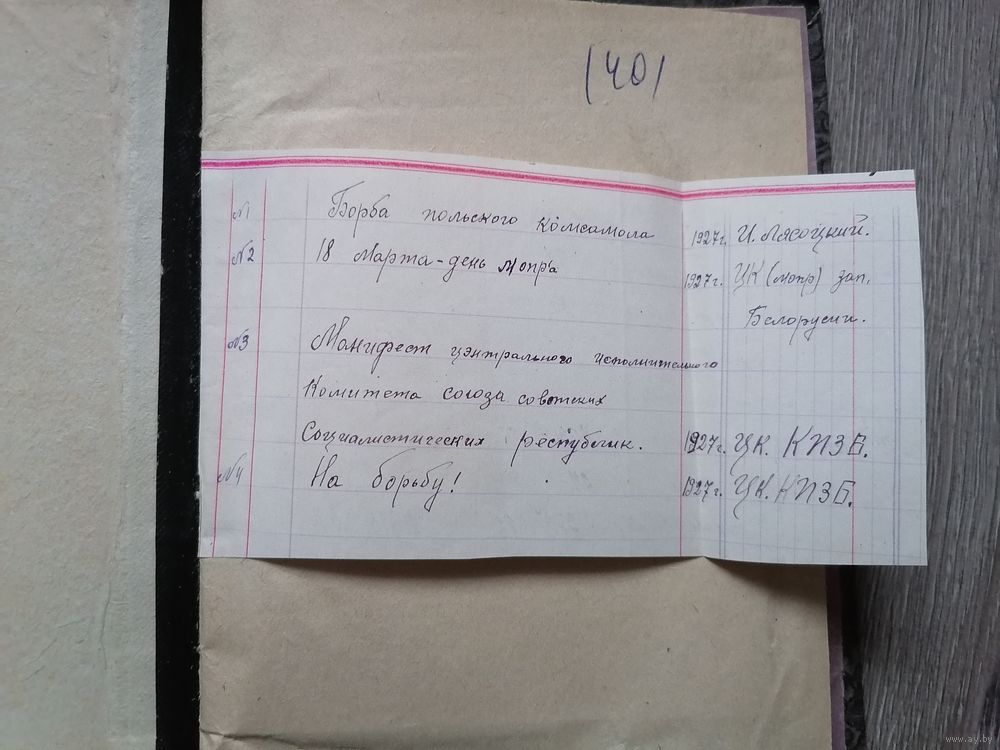 1401
№1 Борба польского комсамола 1927г. И. Лясоцкий.
№2 18 Марта-день мопр'а 1927г. ЦК (мопр) зап.
Белорусии.
№3 Манифест цэнтрального исполнительного
Комитета союза советских
Социалистических республик. 1927г. ЦК. КПЗБ.
№4 На борьбу! 1927г. ЦК. КПЗБ.
www.ay.by